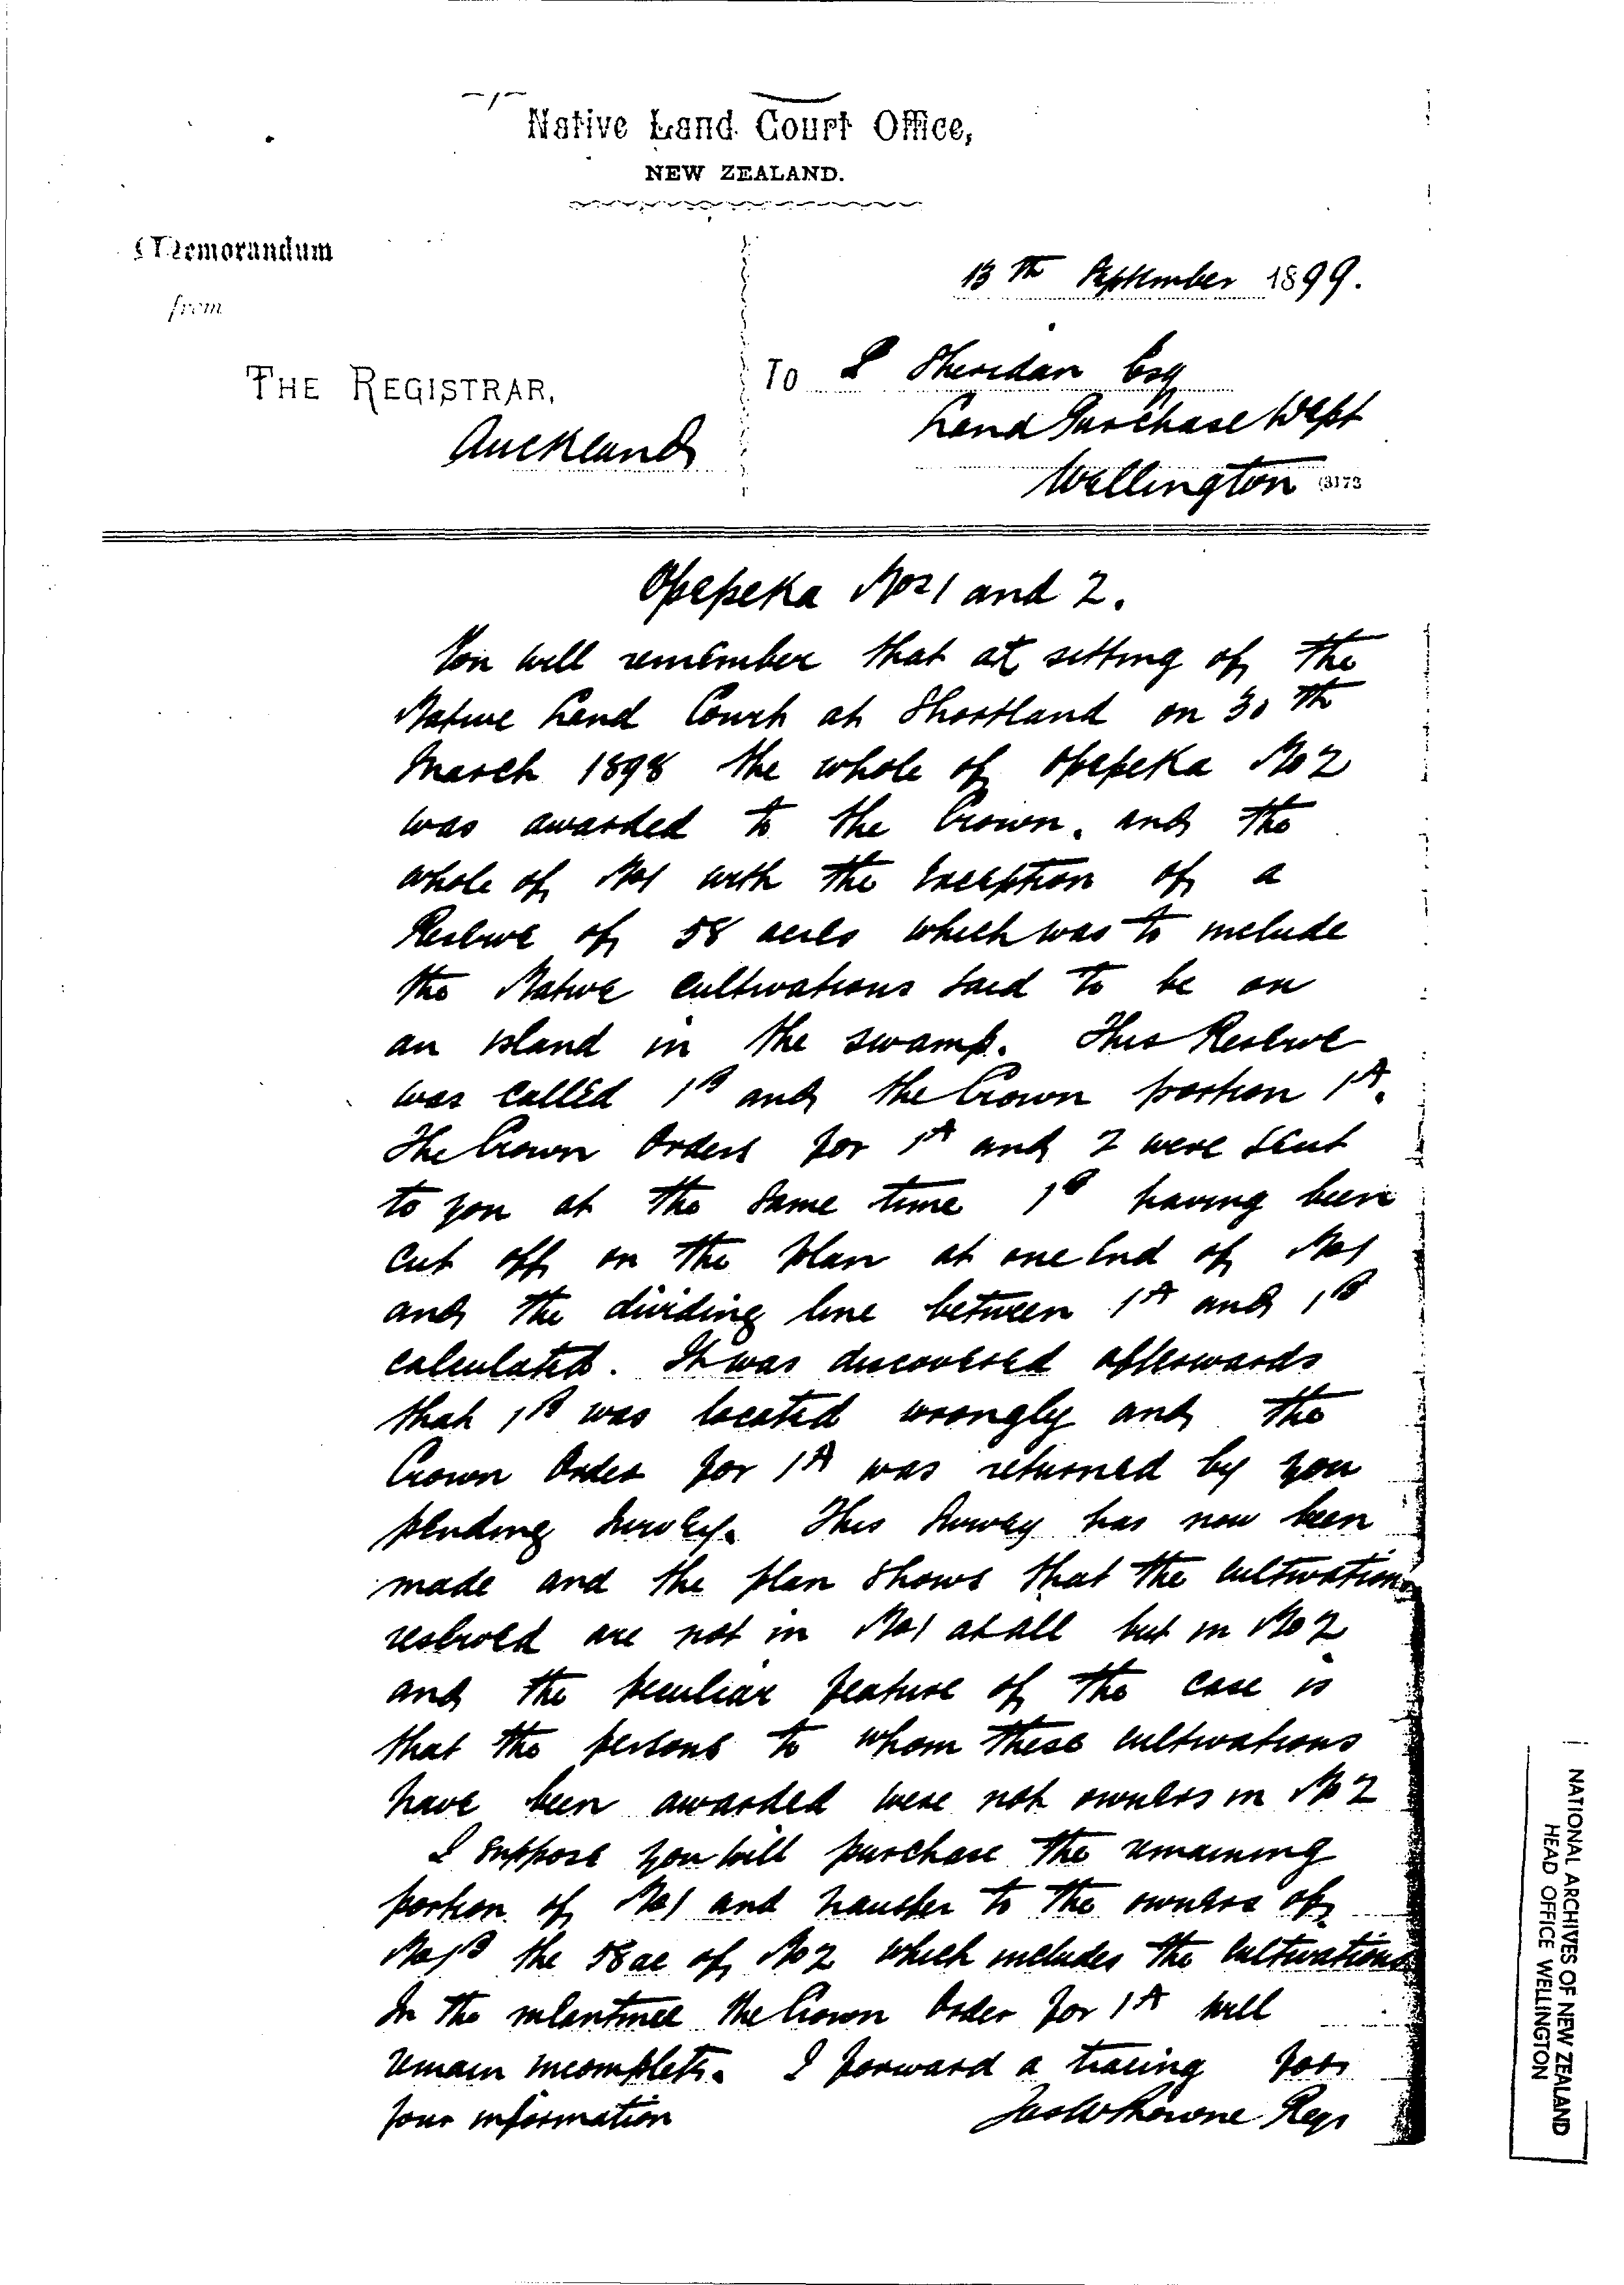 Native Land Court Office,
NEW ZEALAND.
Memorandum
from
THE REGISTRAR,
Auckland
13th September 1899.
To P Sheridan Esq
Land Purchase Dept
Wellington
Opepeka Nos 1 and 2.
You will remember that at sitting of the
Native Land Court at Shortland on 30th
March 1898 the whole of Opepeka No 2
was awarded to the Crown. and the
whole of No 1 with the exception of a
Reserve of 58 acres which was to include
the Native cultivations said to be on
an island in the swamp. This Reserve
was called 1B and the Crown portion 1A.
The Crown Orders for 1A and 2 were sent
to you at the same time 1B having been
cut off on the plan at one end of No 1
and the dividing line between 1A and 1B
calculated. It was discovered afterwards
that 1B was located wrongly and the
Crown Order for 1A was returned by you
pending survey. This survey has now been
made and the plan shows that the cultivations
reserved are not in No 1 at all but in No 2
and the peculiar feature of the case is
that the persons to whom these cultivations
have been awarded were not owners in No 2
I suppose you will purchase the remaining
portion of No 1 and transfer to the owners of
No 1B the 58 ac of No 2 which includes the cultivations
In the meantime the Crown Order for 1A will
remain incomplete. I forward a tracing for
your information
Jas W Browne Regr
NATIONAL ARCHIVES OF NEW ZEALAND
HEAD OFFICE WELLINGTON